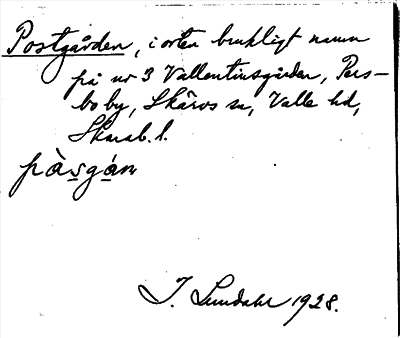 Postgården, i orten brukligt namn
på nr 3 Vallentinsgården, Pers-
bo by, Skärvs sn, Valle hd,
Skarab. l.
pàsgán
I. Lundahl 1928.